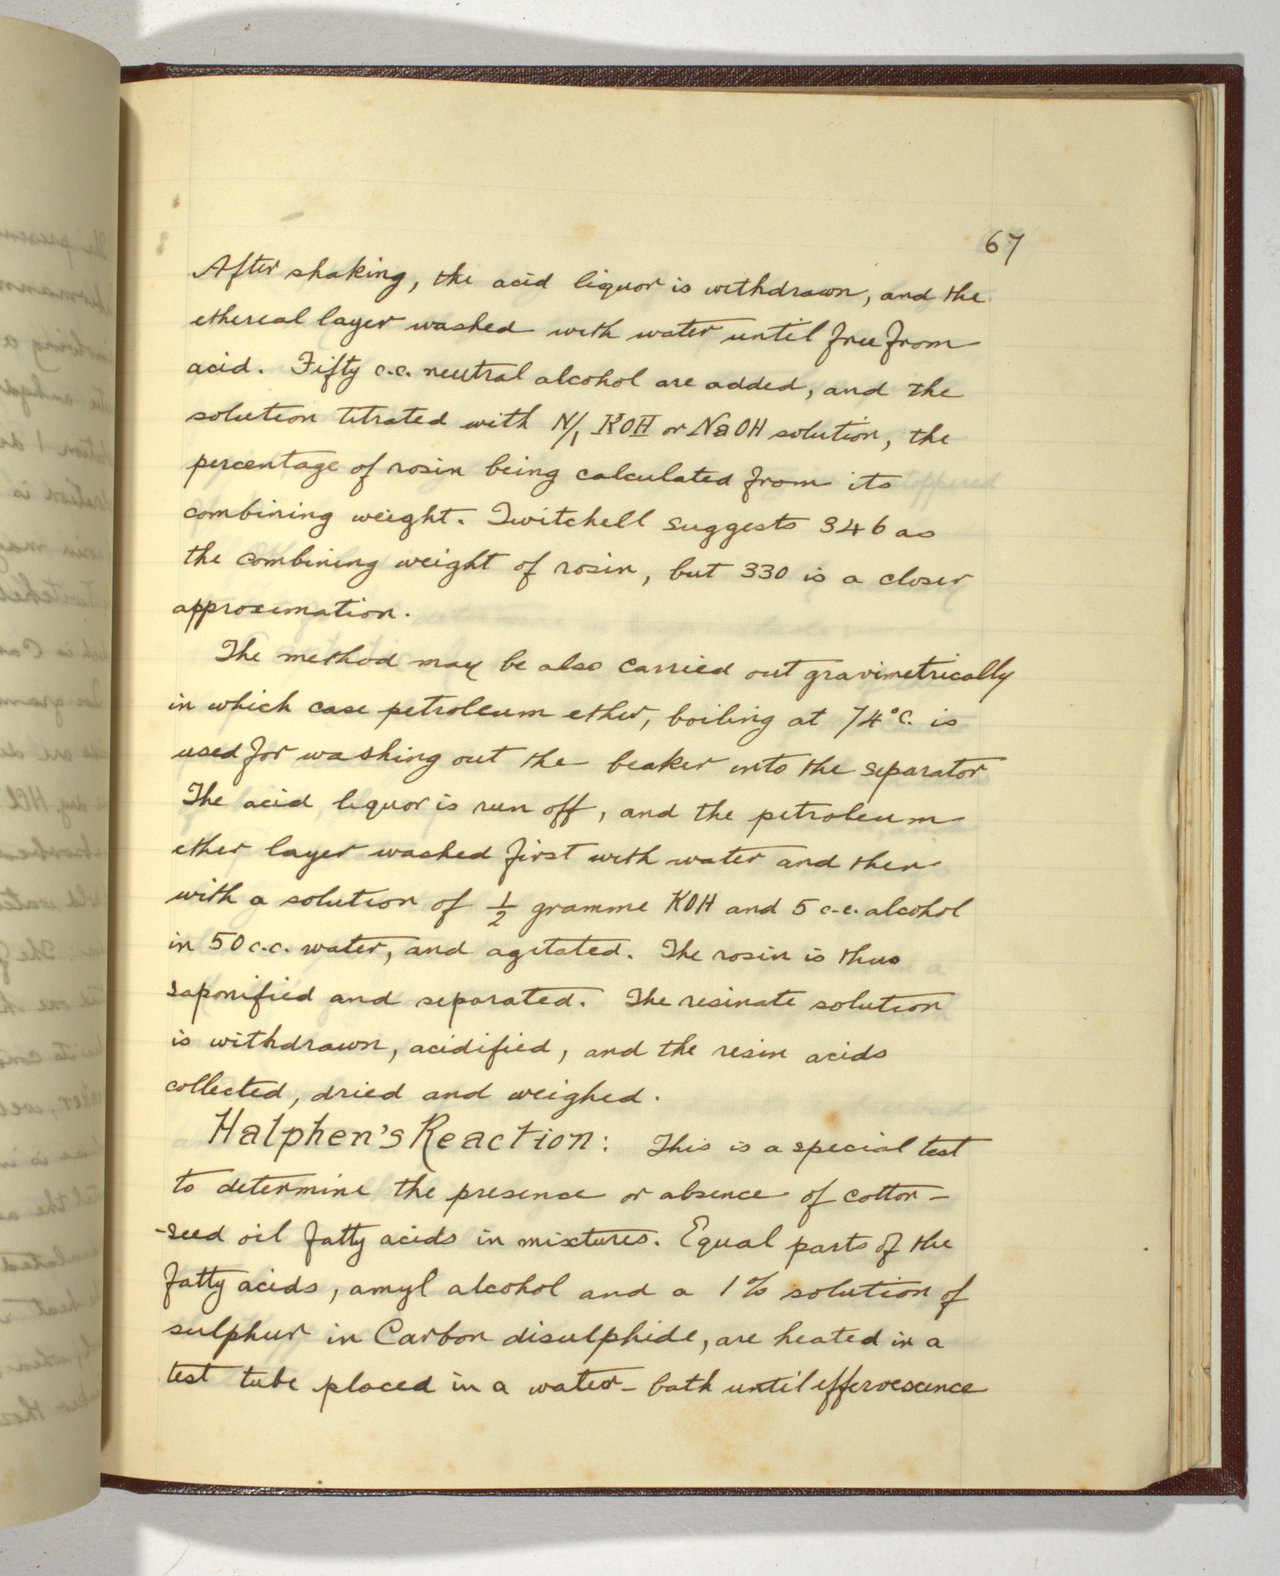 67
After shaking, the acid liquor is withdrawn, and the
ethereal layer washed with water until free from
acid. Fifty c.c. neutral alcohol are added, and the
solution titrated with N/1 KOH or NaOH solution, the
percentage of rosin being calculated from its
combining weight. Twitchell suggests 346 as
the combining weight of rosin, but 330 is a closer
approximation.
The method may be also carried out gravimetrically
in which case petroleum ether, boiling at 74°C. is
used for washing out the beaker into the separator
The acid liquor is run off, and the petroleum
ether layer washed first with water and then
with a solution of 1/2 gramme KOH and 5 c.c. alcohol
in 50 c.c. water, and agitated. The rosin is thus
saponified and separated. The resinate solution
is withdrawn, acidified, and the resin acids
collected, dried and weighed.
Halphen's Reaction: This is a special test
to determine the presence or absence of cotton-
-seed oil fatty acids in mixtures. Equal parts of the
fatty acids, amyl alcohol and a 1% solution of
sulphur in Carbon disulphide, are heated in a
test tube placed in a water-bath until effervescence